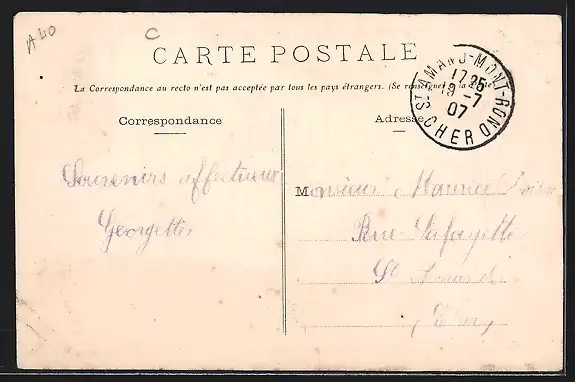 A40
C
CARTE POSTALE
La Correspondance au recto n'est pas acceptée par tous les pays étrangers. (Se renseigner à la
ST-AMAND-MONT-ROND
17 25
19 -7
07
CHER
Correspondance
Adresse
Souvenirs affectueux
Georgette
Monsieur Maurice
Rue Lafayette
St Amand